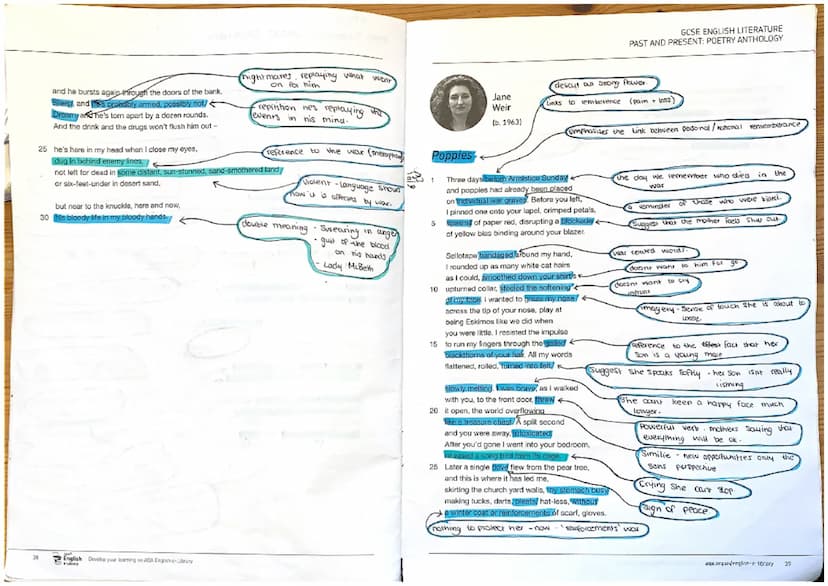 nightmares, replaying what went
on for him
and he bursts again through the doors of the bank.
Sleep, and he's probably armed, possibly not.
Dream, and he's torn apart by a dozen rounds.
And the drink and the drugs won't flush him out –
repitition he's replaying the
events in his mind.
25 he's here in my head when I close my eyes,
dug in behind enemy lines,
not left for dead in some distant, sun-stunned, sand-smothered land
or six-feet-under in desert sand,
reference to the war (metaphor)
violent - language shows
how it is affected by war.
but near to the knuckle, here and now,
30 his bloody life in my bloody hands.
double meaning - Swearing in anger
- guilt of the blood
on his hands
- Lady McBeth
38
English
Develop your learning on AQA English e-Library
GCSE ENGLISH LITERATURE
PAST AND PRESENT: POETRY ANTHOLOGY
Jane
Weir
(b. 1963)
strong flower
links to rememberence (pain + loss)
emphasises the link between personal / national rememberance
Poppies
1 Three days before Armistice Sunday
and poppies had already been placed
on individual war graves. Before you left,
I pinned one onto your lapel, crimped petals,
5 spasms of paper red, disrupting a blockade
of yellow bias binding around your blazer.
the day we remember who died in the
war
a reminder of those who were killed.
Suggest that the mother feels shut out
Sellotape bandaged around my hand,
I rounded up as many white cat hairs
as I could, smoothed down your shirt's
10 upturned collar, steeled the softening
of my face. I wanted to graze my nose
across the tip of your nose, play at
being Eskimos like we did when
you were little. I resisted the impulse
15 to run my fingers through the gelled
blackthorns of your hair. All my words
flattened, rolled, turned into felt,
war related words.
doesnt want to him to go
doesnt want to cry
imagery - Sense of touch she is about to
loose
reference to the fact that her
son is a young man
Suggest she speaks softly - her son isnt really
lisning
slowly melting. I was brave, as I walked
with you, to the front door, threw
20 it open, the world overflowing
like a treasure chest. A split second
and you were away, intoxicated.
After you'd gone I went into your bedroom,
released a song bird from its cage.
25 Later a single dove flew from the pear tree,
and this is where it has led me,
skirting the church yard walls, my stomach busy
making tucks, darts, pleats, hat-less, without
a winter coat or reinforcements of scarf, gloves.
She cant keep a happy face much
longer.
Powerful verb - mothers saying that
everything will be ok.
Similie - new opportunities only the
sons perspective
Crying she cant stop
sign of peace
nothing to protect her - now - 'reinforcements' war
39